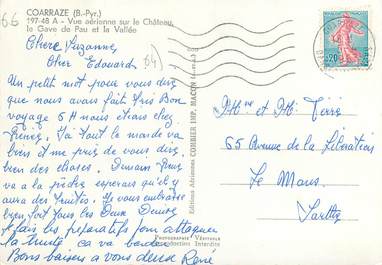 66
COARRAZE (B.-Pyr.)
197-48 A - Vue aérienne sur le Château,
le Gave de Pau et la Vallée
64
Chere Suzanne,
Cher Edouard
Un petit mot pour vous dire
que nous avons fait très Bon
voyage 5 H nous étions chez
Pierrez. Ici tout le monde va
bien et me prie de vous dire
bien des choses. Demain
va a la pêche esperons qu'el y
aura des truites. Si vous entendrez
bien, fort tous les Deux
je fais les preparatifs pour attaquer
la truite, ca va barder
Bons baisers a vous deux René
Editions Aériennes COMBIER IMP. MACON (S.-et-L.)
PHOTOGRAPHIE VÉRITABLE
Reproduction Interdite
0,20
Mme et Mr
65 Avenue de la Libération
Le Mans
Sarthe